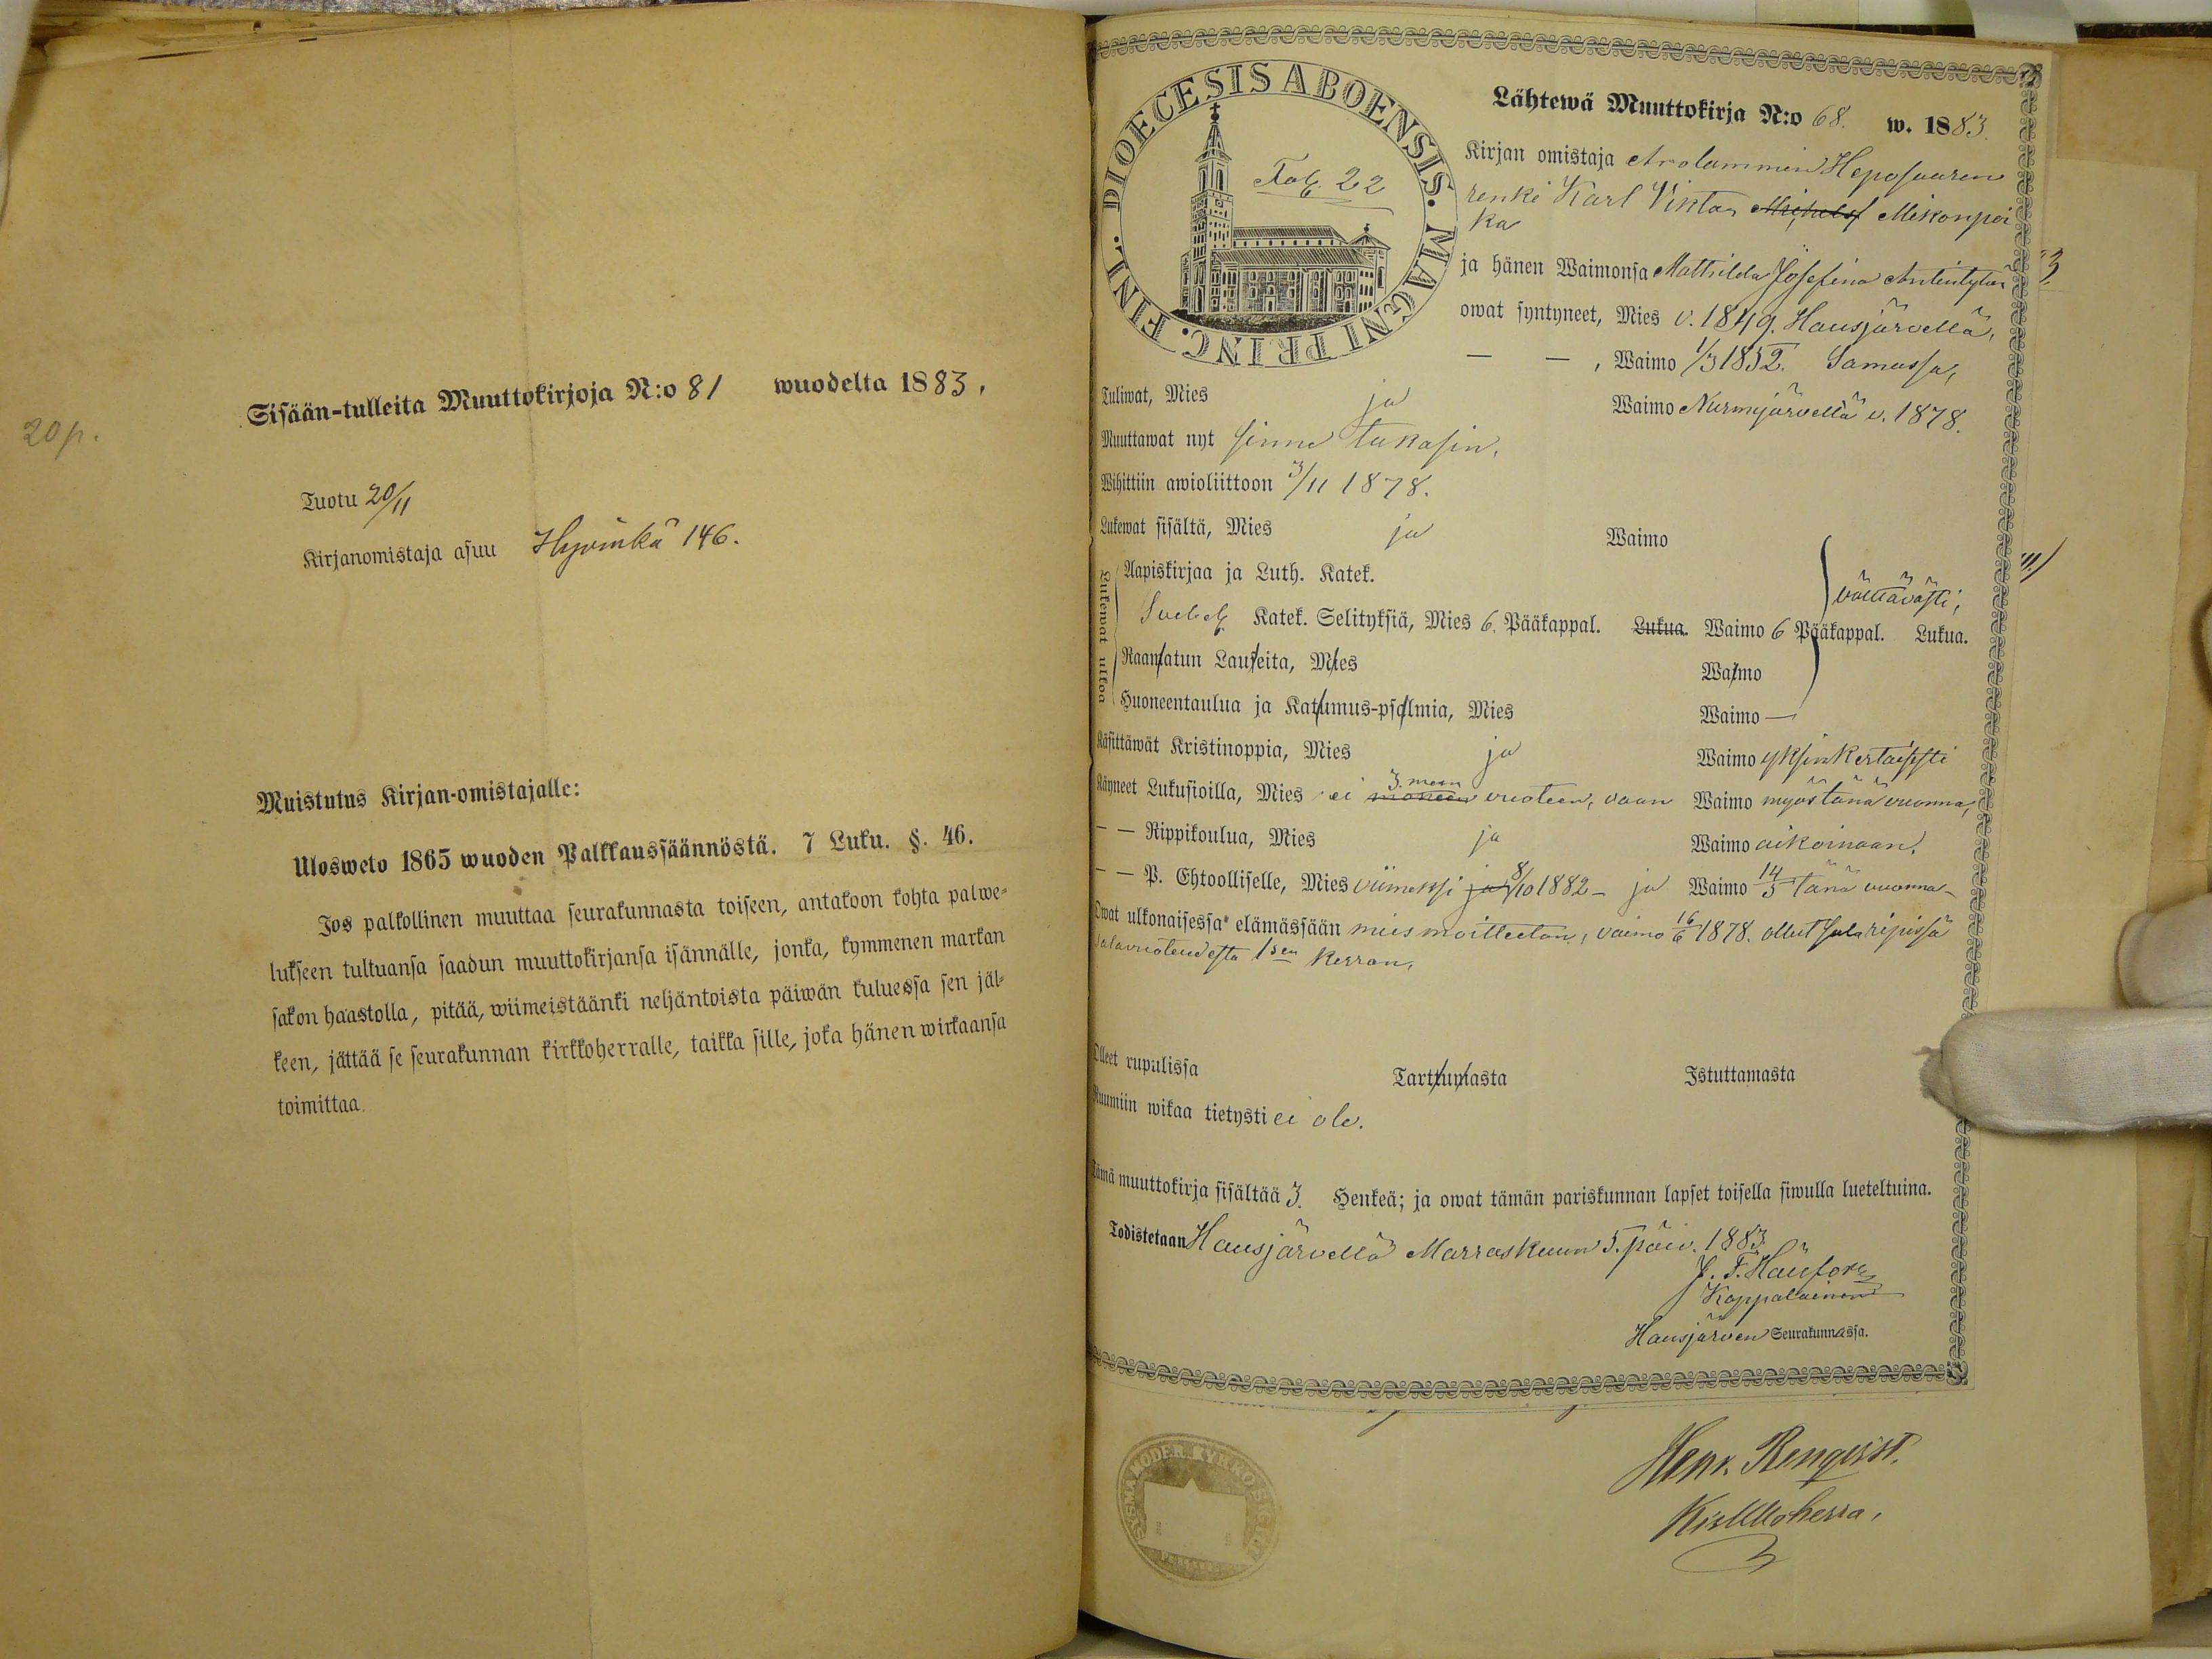 Sisään-tulleita Muuttokirjoja N:o 81 wuodelta 1883,
20 p.
Tuotu 20/11
Kirjanomistaja asuu Hyvinkä 146.
Muistutus Kirjan-omistajalle:
Ulosweto 1865 wuoden Palkkaussäännöstä. 7 Luku. §. 46.
Jos palkollinen muuttaa seurakunnasta toiseen, antakoon kohta palwe-
lukseen tultuansa saadun muuttokirjansa isännälle, jonka, kymmenen markan
sakon haastolla, pitää, wiimeistäänki neljäntoista päiwän kuluessa sen jäl-
keen, jättää se seurakunnan kirkkoherralle, taikka sille, joka hänen wirkaansa
toimittaa.
DIOECESIS ABOENSIS. MAGNI PRINC. FINL.
Fol. 22
Lähtewä Muuttokirja N:o 68. w. 1883.
Kirjan omistaja Arolammin Heposuaren
renki Karl Viktor Mikonpoi
ka
ja hänen Waimonsa Mathilda Josefina Antintytär
owat syntyneet, Mies v. 1849. Hausjärvellä,
— — , Waimo 1/3 1852. Samassa,
Tuliwat, Mies ja Waimo Nurmijärvellä v. 1878.
Muuttawat nyt sinne takasin.
Wihittiin awioliittoon 3/11 1878.
Lukewat sisältä, Mies ja Waimo
Lukewat ulkoa
Aapiskirjaa ja Luth. Katek.
välttävästi,
Svebel. Katek. Selityksiä, Mies 6. Pääkappal. Lukua. Waimo 6 Pääkappal. Lukua.
Raamatun Lauseita, Mies Waimo
Huoneentaulua ja Katumus-psalmia, Mies Waimo —
Käsittäwät Kristinoppia, Mies ja Waimo yksinkertaisesti
Käyneet Lukusioilla, Mies ei 3. meen moneen vuoteen, vaan Waimo myös tänä vuonna,
— — Rippikoulua, Mies ja Waimo aikoinaan.
— — P. Ehtoolliselle, Mies viimeksi 8/10 1882 — ja Waimo 14/5 tänä vuonna —
Owat ulkonaisessa elämässään mies moitteeton, vaimo 16/6 1878. ollut salaripissä
salavuoteudesta 1sen kerran.
Olleet rupulissa Tarttumasta Istuttamasta
Ruumiin wikaa tietysti ei ole.
Tämä muuttokirja sisältää 3. Henkeä; ja owat tämän pariskunnan lapset toisella siwulla lueteltuina.
Todistetaan Hausjärvellä Marraskuun 5. päiv. 1883.
J. F. Häufors
Kappalainen
Hausjärven Seurakunnassa.
SYSMÄ MODER KYRKO SIGILL
Henr. Renqvist.
Kirkkoherra,